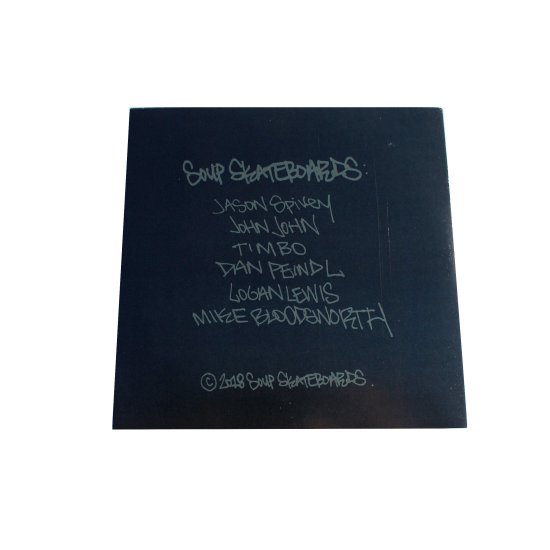 SOUP SKATEBOARDS:
JASON SPIVEY
JOHN JOHN
TIMBO
DAN PEINDL
LOGAN LEWIS
MIKE BLOODSWORTH
© 2018 SOUP SKATEBOARDS.